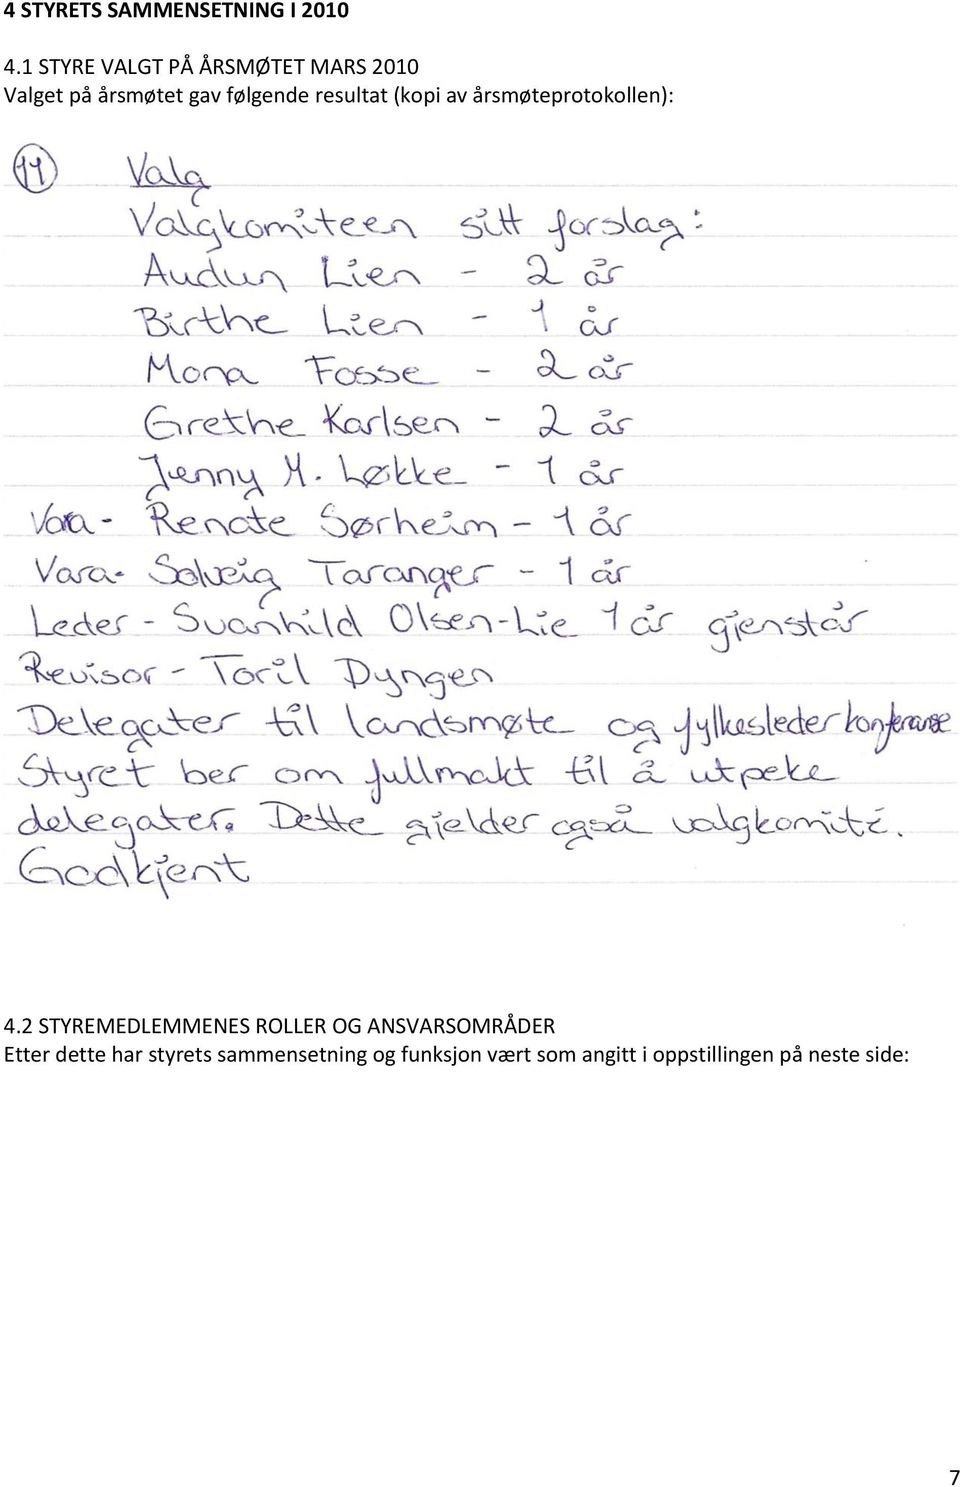 4 STYRETS SAMMENSETNING I 2010
4.1 STYRE VALGT PÅ ÅRSMØTET MARS 2010
Valget på årsmøtet gav følgende resultat (kopi av årsmøteprotokollen):
11 Valg
Valgkomiteen sitt forslag:
Audun Lien - 2 år
Birthe Lien - 1 år
Mona Fosse - 2 år
Grethe Karlsen - 2 år
Jenny M. Løkke - 1 år
Vara - Renate Sørheim - 1 år
Vara - Solveig Taranger - 1 år
Leder - Svanhild Olsen-Lie 1 år gjenstår
Revisor - Toril Dyngen
Delegater til landsmøte og fylkeslederkonferanse
Styret ber om fullmakt til å utpeke
delegater. Dette gjelder også valgkomité.
Godkjent
4.2 STYREMEDLEMMENES ROLLER OG ANSVARSOMRÅDER
Etter dette har styrets sammensetning og funksjon vært som angitt i oppstillingen på neste side:
7